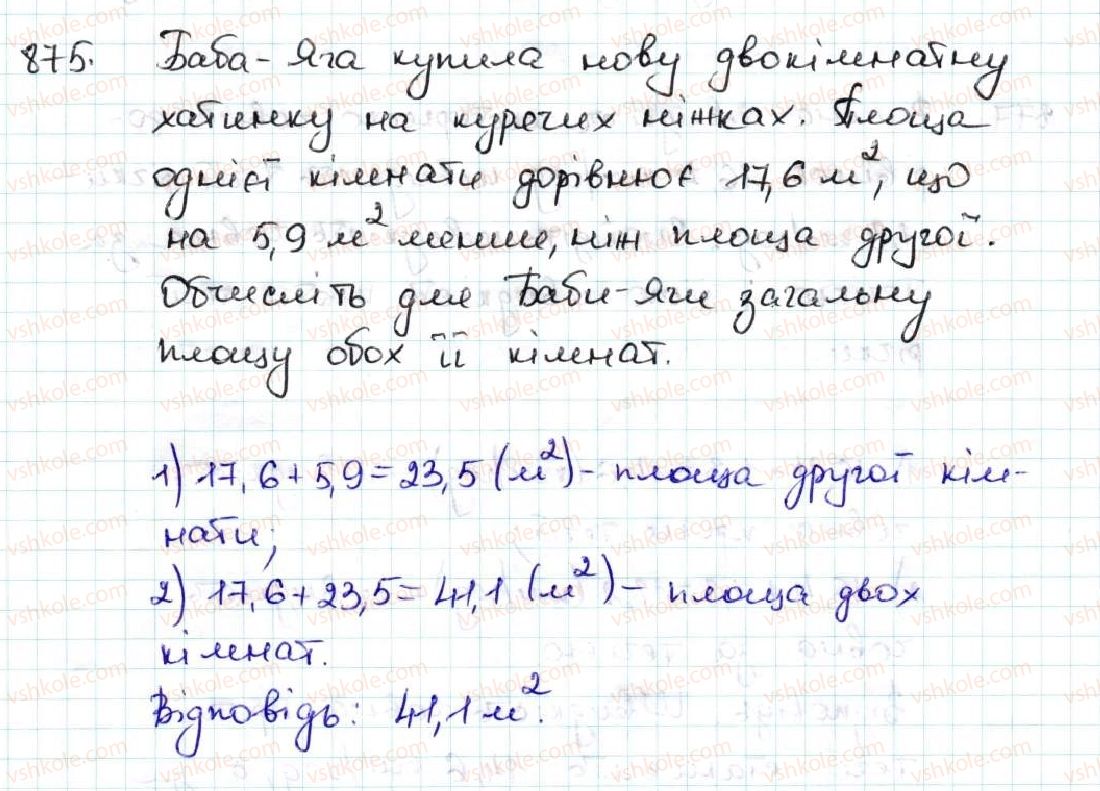 875. Баба-Яга купила нову двокімнатну
хатинку на курячих ніжках. Площа
однієї кімнати дорівнює 17,6 м², що
на 5,9 м² менше, ніж площа другої.
Обчисліть для Баби-Яги загальну
площу обох її кімнат.
1) 17,6 + 5,9 = 23,5 (м²) – площа другої кім-
нати;
2) 17,6 + 23,5 = 41,1 (м²) – площа двох
кімнат.
Відповідь: 41,1 м².